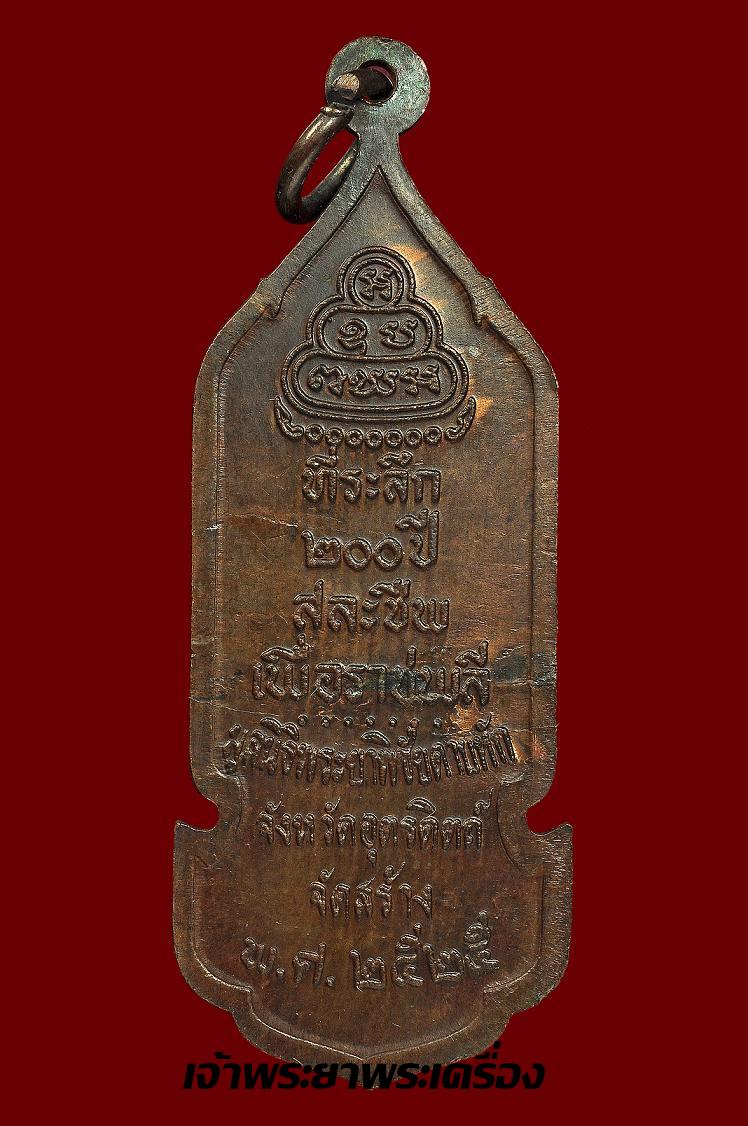 ที่ระลึก
๒๐๐ปี
สละชีพ
เพื่อราชพลี
มูลนิธิพระยาพิชัยดาบหัก
จังหวัดอุตรดิตถ์
จัดสร้าง
พ.ศ.๒๕๒๕
เจ้าพระยาพระเครื่อง